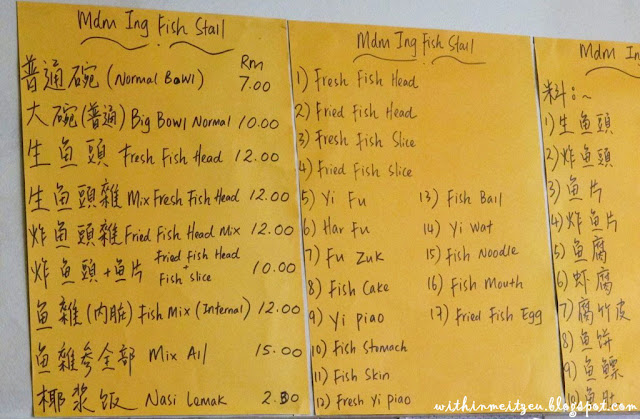 Mdm Ing Fish Stall
Rm
普通碗 (Normal Bowl) 7.00
大碗(普通) Big Bowl Normal 10.00
生鱼頭 Fresh Fish Head 12.00
生鱼頭雜 Mix Fresh Fish Head 12.00
炸鱼頭雜 Fried Fish Head Mix 12.00
炸鱼頭+鱼片 Fried Fish Head + Fish Slice 10.00
鱼雜(内脏) Fish Mix (Internal) 12.00
鱼雜参全部 Mix All 15.00
椰浆饭 Nasi Lemak
Mdm Ing Fish Stall
1) Fresh Fish Head
2) Fried Fish Head
3) Fresh Fish Slice
4) Fried Fish Slice
5) Yi Fu
6) Har Fu
7) Fu Zuk
8) Fish Cake
9) Yi Piao
10) Fish Stomach
11) Fish Skin
12) Fresh Yi Piao
13) Fish Ball
14) Yi Wat
15) Fish Noodle
16) Fish Mouth
17) Fried Fish Egg
Mdm Ing
料:~
1) 生鱼頭
2) 炸鱼頭
3) 鱼片
4) 炸鱼片
5) 鱼腐
6) 虾腐
7) 腐竹皮
8) 鱼饼
9) 鱼鳔
10) 鱼肚
withinmeitzeu.blogspot.com